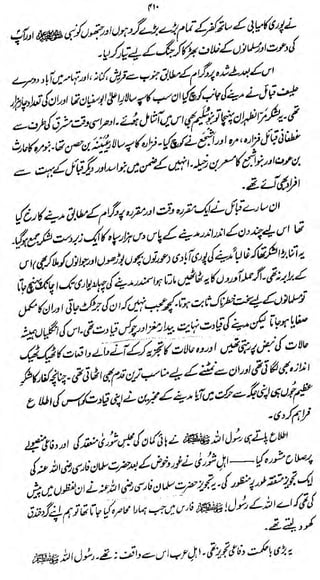 ۴۱۰
نے پوری کامیابی کے ساتھ کفر کے تمام بڑے بڑے گروہوں اور جتھوں کو نبی ﷺ اور آپ
کی دعوت اور مسلمانوں کے خلاف بھڑکا کر جنگ کے لیے تیار کر لیا۔
اس کے بعد طے شدہ پروگرام کے مطابق جنوب سے قریش، کنانہ، اور تہامہ میں آباد دوسرے
حلیف قبائل نے مدینے کی جانب کوچ کیا ان سب کا سپہ سالارِ اعلیٰ ابوسفیان تھا اور ان کی تعداد چار ہزار
تھی۔ یہ لشکر مرّ الظہران پہنچا تو بنو سُلیم بھی اس میں آ شامل ہوئے۔ ادھر اسی وقت مشرق کی طرف سے
غطفانی قبائل فزارہ، مرہ اور اشجع نے کوچ کیا۔ فزارہ کا سپہ سالار عُیینہ بن حصن تھا۔ بنو مرہ کا حارث
بن عوف اور بنو اشجع کا مسعر بن رخیلہ۔ انہیں کے ضمن میں بنو اسد اور دیگر قبائل کے بہت سے
افراد بھی آئے تھے۔
ان سارے قبائل نے ایک مقررہ وقت اور مقررہ پروگرام کے مطابق مدینے کا رخ کیا
تھا اس لیے چند دن کے اندر اندر مدینے کے پاس دس ہزار سپاہ کا ایک زبردست لشکر جمع ہو گیا۔
یہ اتنا بڑا لشکر تھا کہ غالباً مدینے کی پوری آبادی (عورتوں بچوں بوڑھوں اور جوانوں کو ملا کر بھی) اس
کے برابر نہ تھی۔ اگر حملہ آوروں کا یہ ٹھاٹھیں مارتا ہوا سمندر مدینے کی چہار دیواری تک اچانک پہنچ جاتا
تو مسلمانوں کے لیے سخت خطرناک ثابت ہوتا۔ کچھ عجب نہیں کہ ان کی جڑ کٹ جاتی اور ان کا مکمل
صفایا ہو جاتا لیکن مدینے کی قیادت نہایت بیدار مغز اور چوکس قیادت تھی۔ اس کی انگلیاں ہمیشہ
حالات کی نبض پر رہتی تھیں اور وہ حالات کا تجزیہ کر کے آنے والے واقعات کا ٹھیک ٹھیک
اندازہ بھی لگاتی تھی اور ان سے نمٹنے کے لیے مناسب ترین قدم بھی اٹھاتی تھی۔ چنانچہ کفار کا لشکرِ
عظیم جوں ہی اپنی جگہ سے حرکت میں آیا مدینے کے مخبرین نے اپنی قیادت کو اس کی اطلاع
فراہم کر دی۔
اطلاع پاتے ہی رسول اللہ ﷺ نے ہائی کمان کی مجلس شوریٰ منعقد کی اور دفاعی منصوبے
پر صلاح مشورہ کیا — اہلِ شوریٰ نے غور و خوض کے بعد حضرت سلمان فارسی رضی اللہ عنہ کی
ایک تجویز متفقہ طور پر منظور کی۔ یہ تجویز حضرت سلمان فارسی رضی اللہ عنہ نے ان لفظوں میں پیش
کی تھی کہ اے اللہ کے رسول! ﷺ فارس میں جب ہمارا محاصرہ کیا جاتا تھا تو ہم اپنے گرد خندق
کھود لیتے تھے۔
یہ بڑی باحکمت دفاعی تجویز تھی۔ اہلِ عرب اس سے واقف نہ تھے۔ رسول اللہ ﷺ